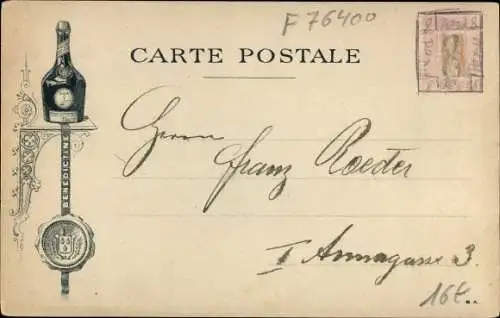 F 76400
CARTE POSTALE
BENEDICTINE
Herrn
Franz Roeder
I Annagasse 3.
16t..